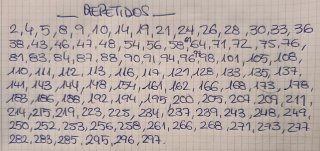 __ REPETIDOS __
2, 4, 5, 8, 9, 10, 14, 19, 21, 24, 26, 28, 30, 33, 36
38, 43, 46, 47, 48, 54, 56, 58, 61, 64, 71, 72, 75, 76,
81, 83, 84, 87, 88, 90, 91, 94, 96, 98, 101, 105, 108,
110, 111, 112, 113, 116, 119, 121, 128, 133, 135, 137,
141, 143, 144, 148, 154, 161, 162, 166, 168, 173, 178,
183, 186, 188, 192, 194, 195, 200, 205, 207, 209, 211,
214, 215, 219, 223, 225, 234, 237, 239, 243, 248, 249,
250, 252, 253, 256, 258, 261, 266, 268, 271, 273, 277
282, 283, 285, 295, 296, 297.